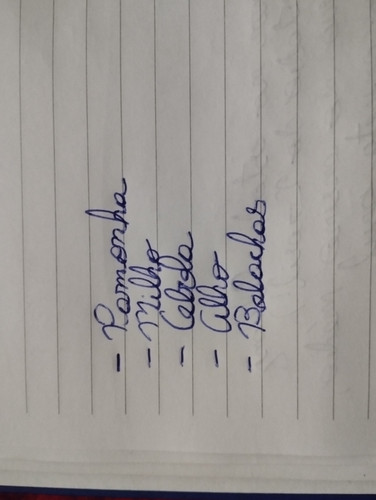 - Pamonha
- Milho
- Cebola
- Alho
- Bolachas